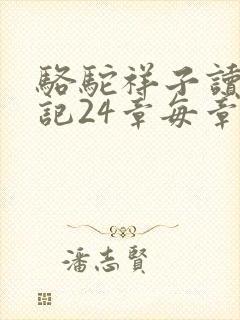 駱駝祥子讀
記24章每章
潘志賢